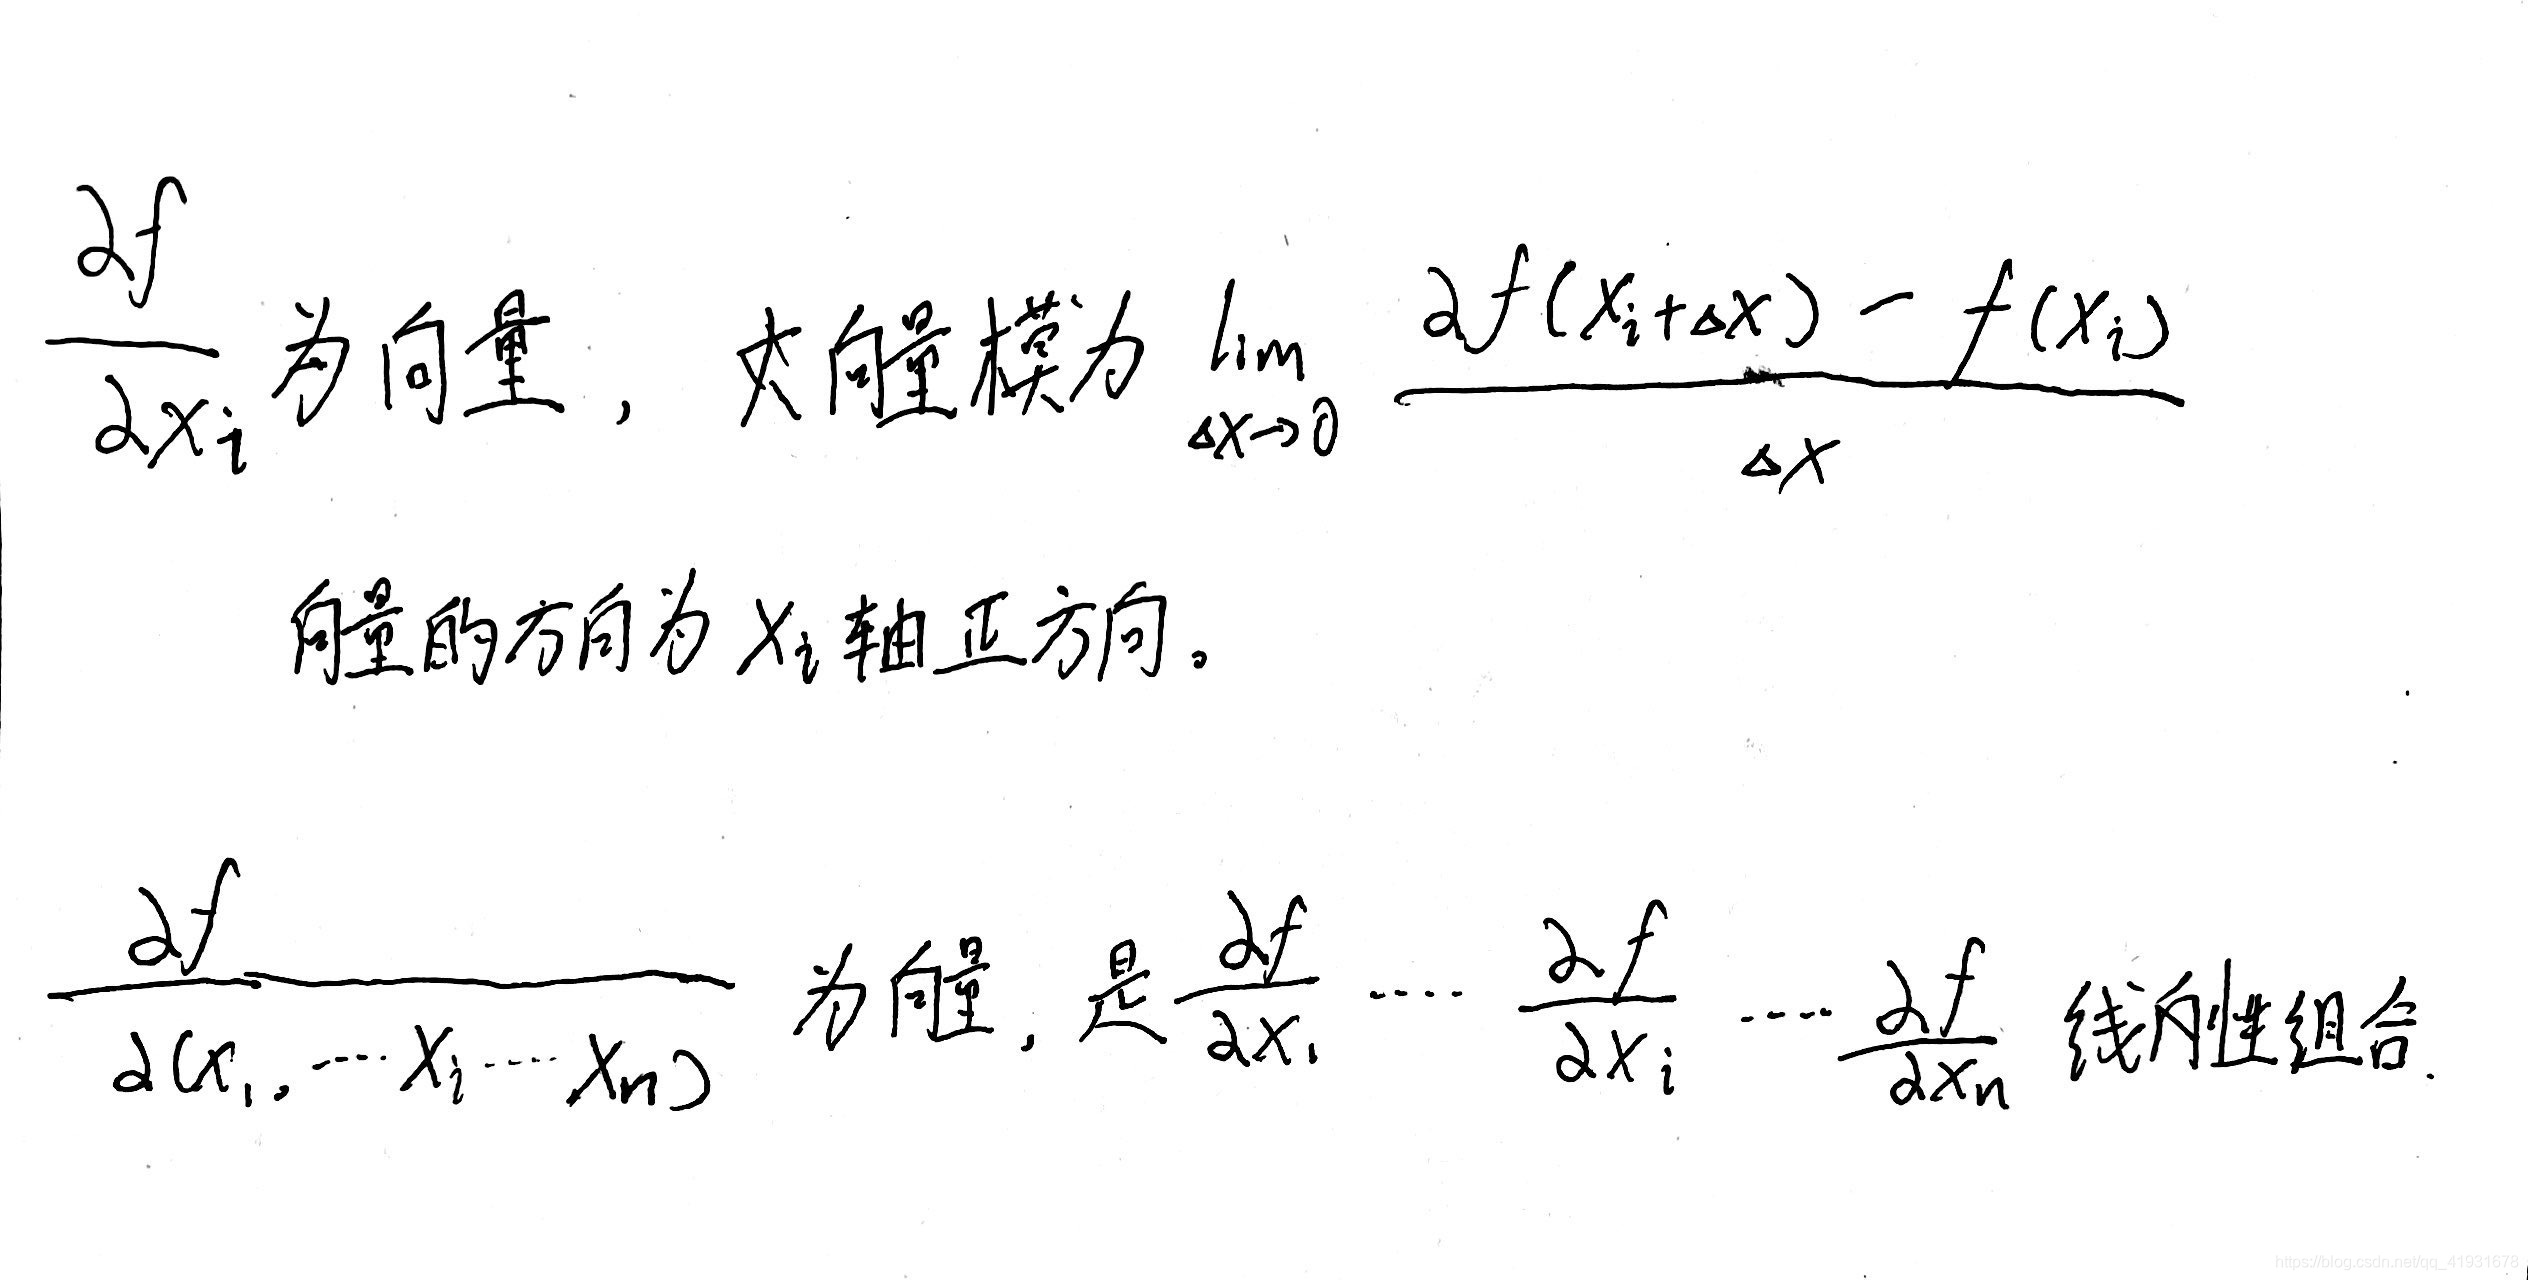 ∂f/∂xᵢ 为向量，向量模为 lim Δx→0 ∂f(xᵢ+Δx) - f(xᵢ) / Δx
向量的方向为 xᵢ 轴正方向。
∂f/∂(x₁, ···· xᵢ ···· xₙ) 为向量，是 ∂f/∂x₁ ···· ∂f/∂xᵢ ···· ∂f/∂xₙ 线性组合.
https://blog.csdn.net/qq_41931678